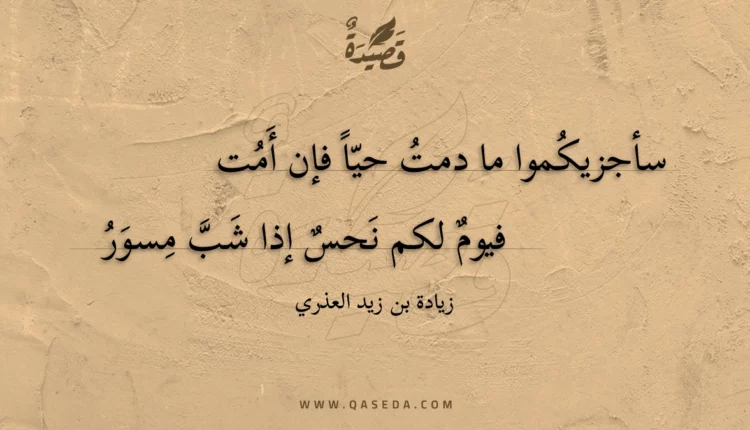 قَصِيدَةٌ
سأجزيكُموا ما دمتُ حيّاً فإن أَمُت
فيومٌ لكم نَحسٌ إذا شَبَّ مِسوَرُ
زيادة بن زيد العذري
WWW.QASEDA.COM